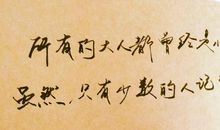 所有的大人都曾经是小
虽然，只有少数的人记